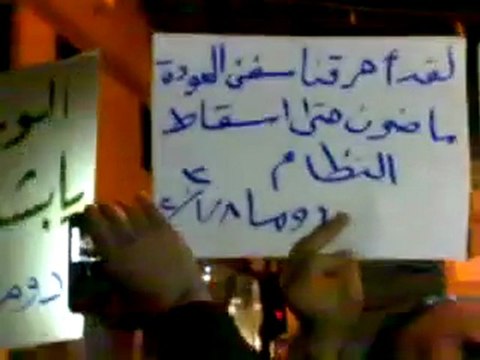 لقد أحرقنا سفن العودة
ماضون حتى اسقاط
النظام
دوما
اليو
يا بش
دوم